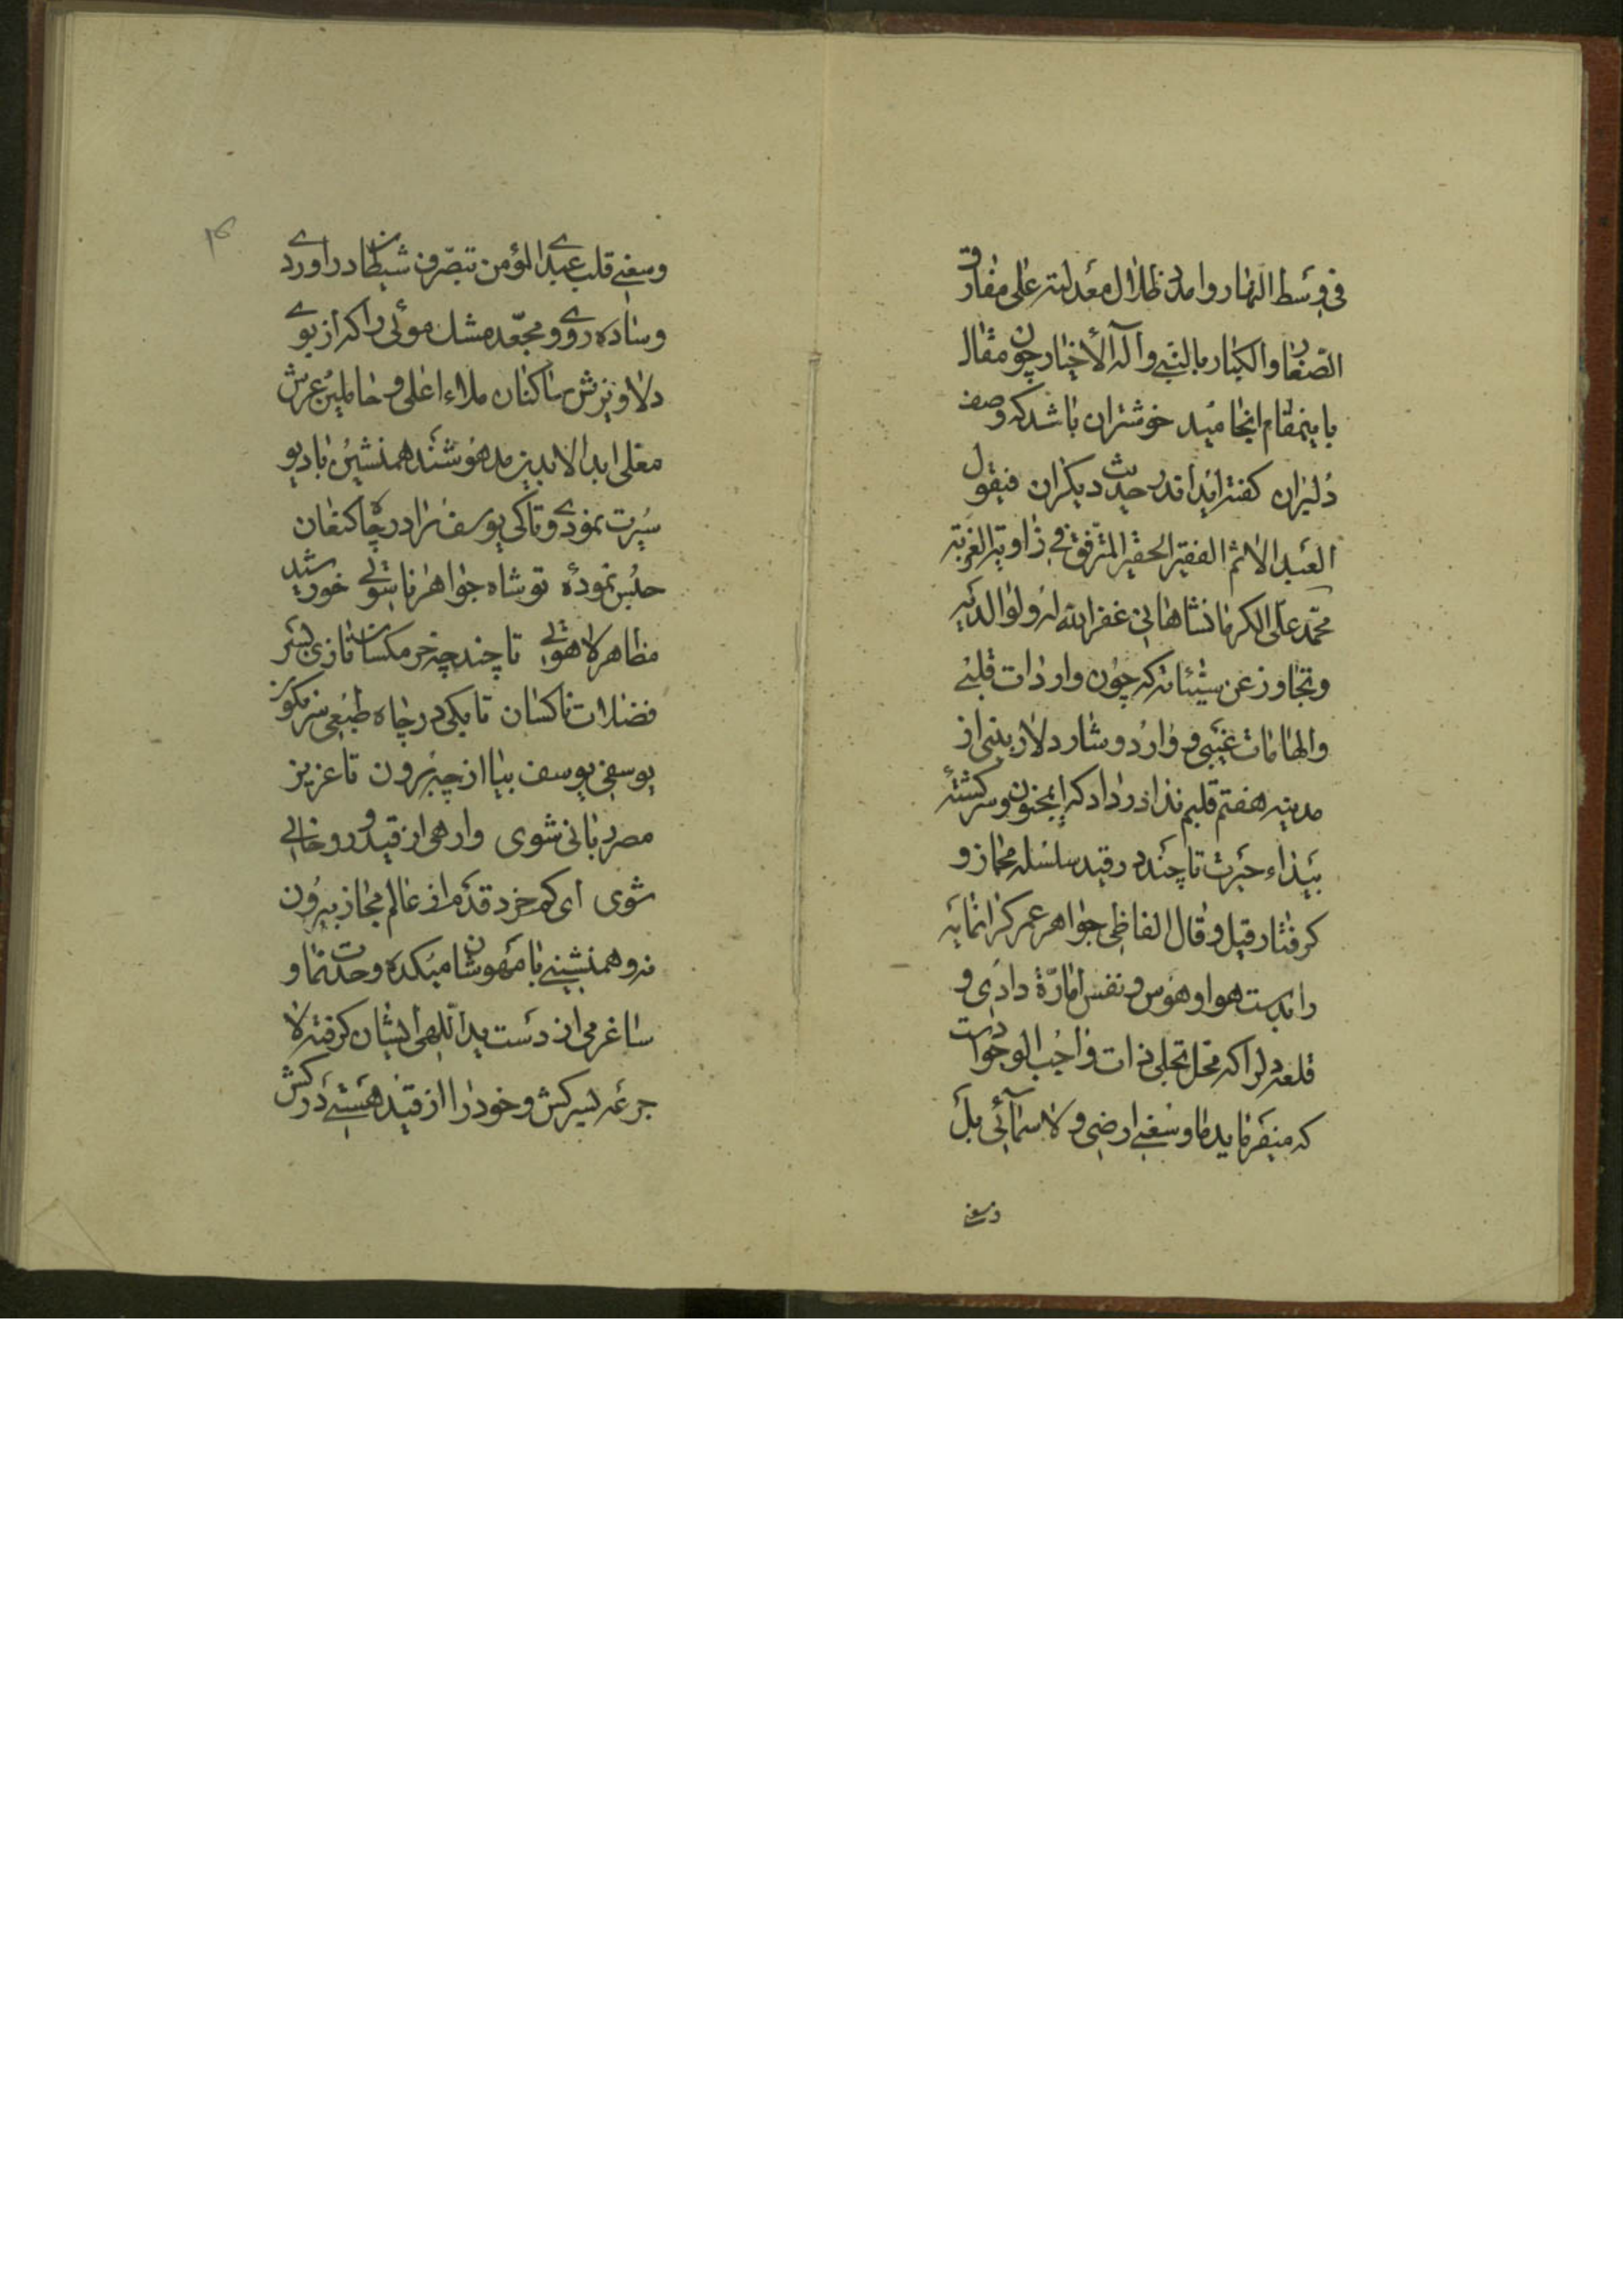 فی وسط النهار وامد ظلال معدلته علی مفارق
الصغار والکبار بالنبی وآله الأخیار چون مقال
باینمقام انجامید خوشتران باشد که وصف
دلبران کفته اید اندر حدیث دیکران فیقول
العبد الاثم الفقیر الحقیر المترفق فی زاویة الغربة
محمد علی الکرمانشاهانی غفر الله له ولوالدیه
وتجاوز عن سیئاته که چون واردات قلبی
والهامات غیبی وارد وشار دلاز بینی از
مدینه هفتم قلبم ندا در داد که ایمجنون وسرکشته
بیداء حیرت تا چند در قید سلسله مجاز و
کرفتار قیل وقال الفاظی جواهر عمر کرانمایه
را بدست هوا وهوس ونفس امارة دادی و
قلعه دلرا که محل تجلی ذات واجب الوجود است
که میفرماید ما وسعنی ارضی ولا سمائی بل
وسعنی
وسعنی قلب عبدی المؤمن بتصرف شیطان دراوردی
وساده روی ومجعد مشك موئی را که از بوی
دلاویزش ساکنان ملاء اعلی وحاملین عرش
معلی ابد الابدین مدهوشند همنشین با دیو
سیرت نمودی وتا کی یوسف را در چاه کنعان
حبس نموده تو شاه جواهر ناسوتی خورشید
مظاهر لاهوتی تا چند چه خرمکسان تازی بسر
فضلات ناکسان تا بکی در چاه طبعی سرنکون
یوسفی یوسف بیا از چه برون تا عزیز
مصر ربانی شوی وارهی از قید و روحانی
شوی ای کم خرد قدم از عالم مجاز بیرون
نه وهمنشینی با مهوشان میکده وحدت نما و
ساغر می از دست ید اللهی ایشان کرفته لا
جرعه بسر کش وخود را از قید هستی درکش